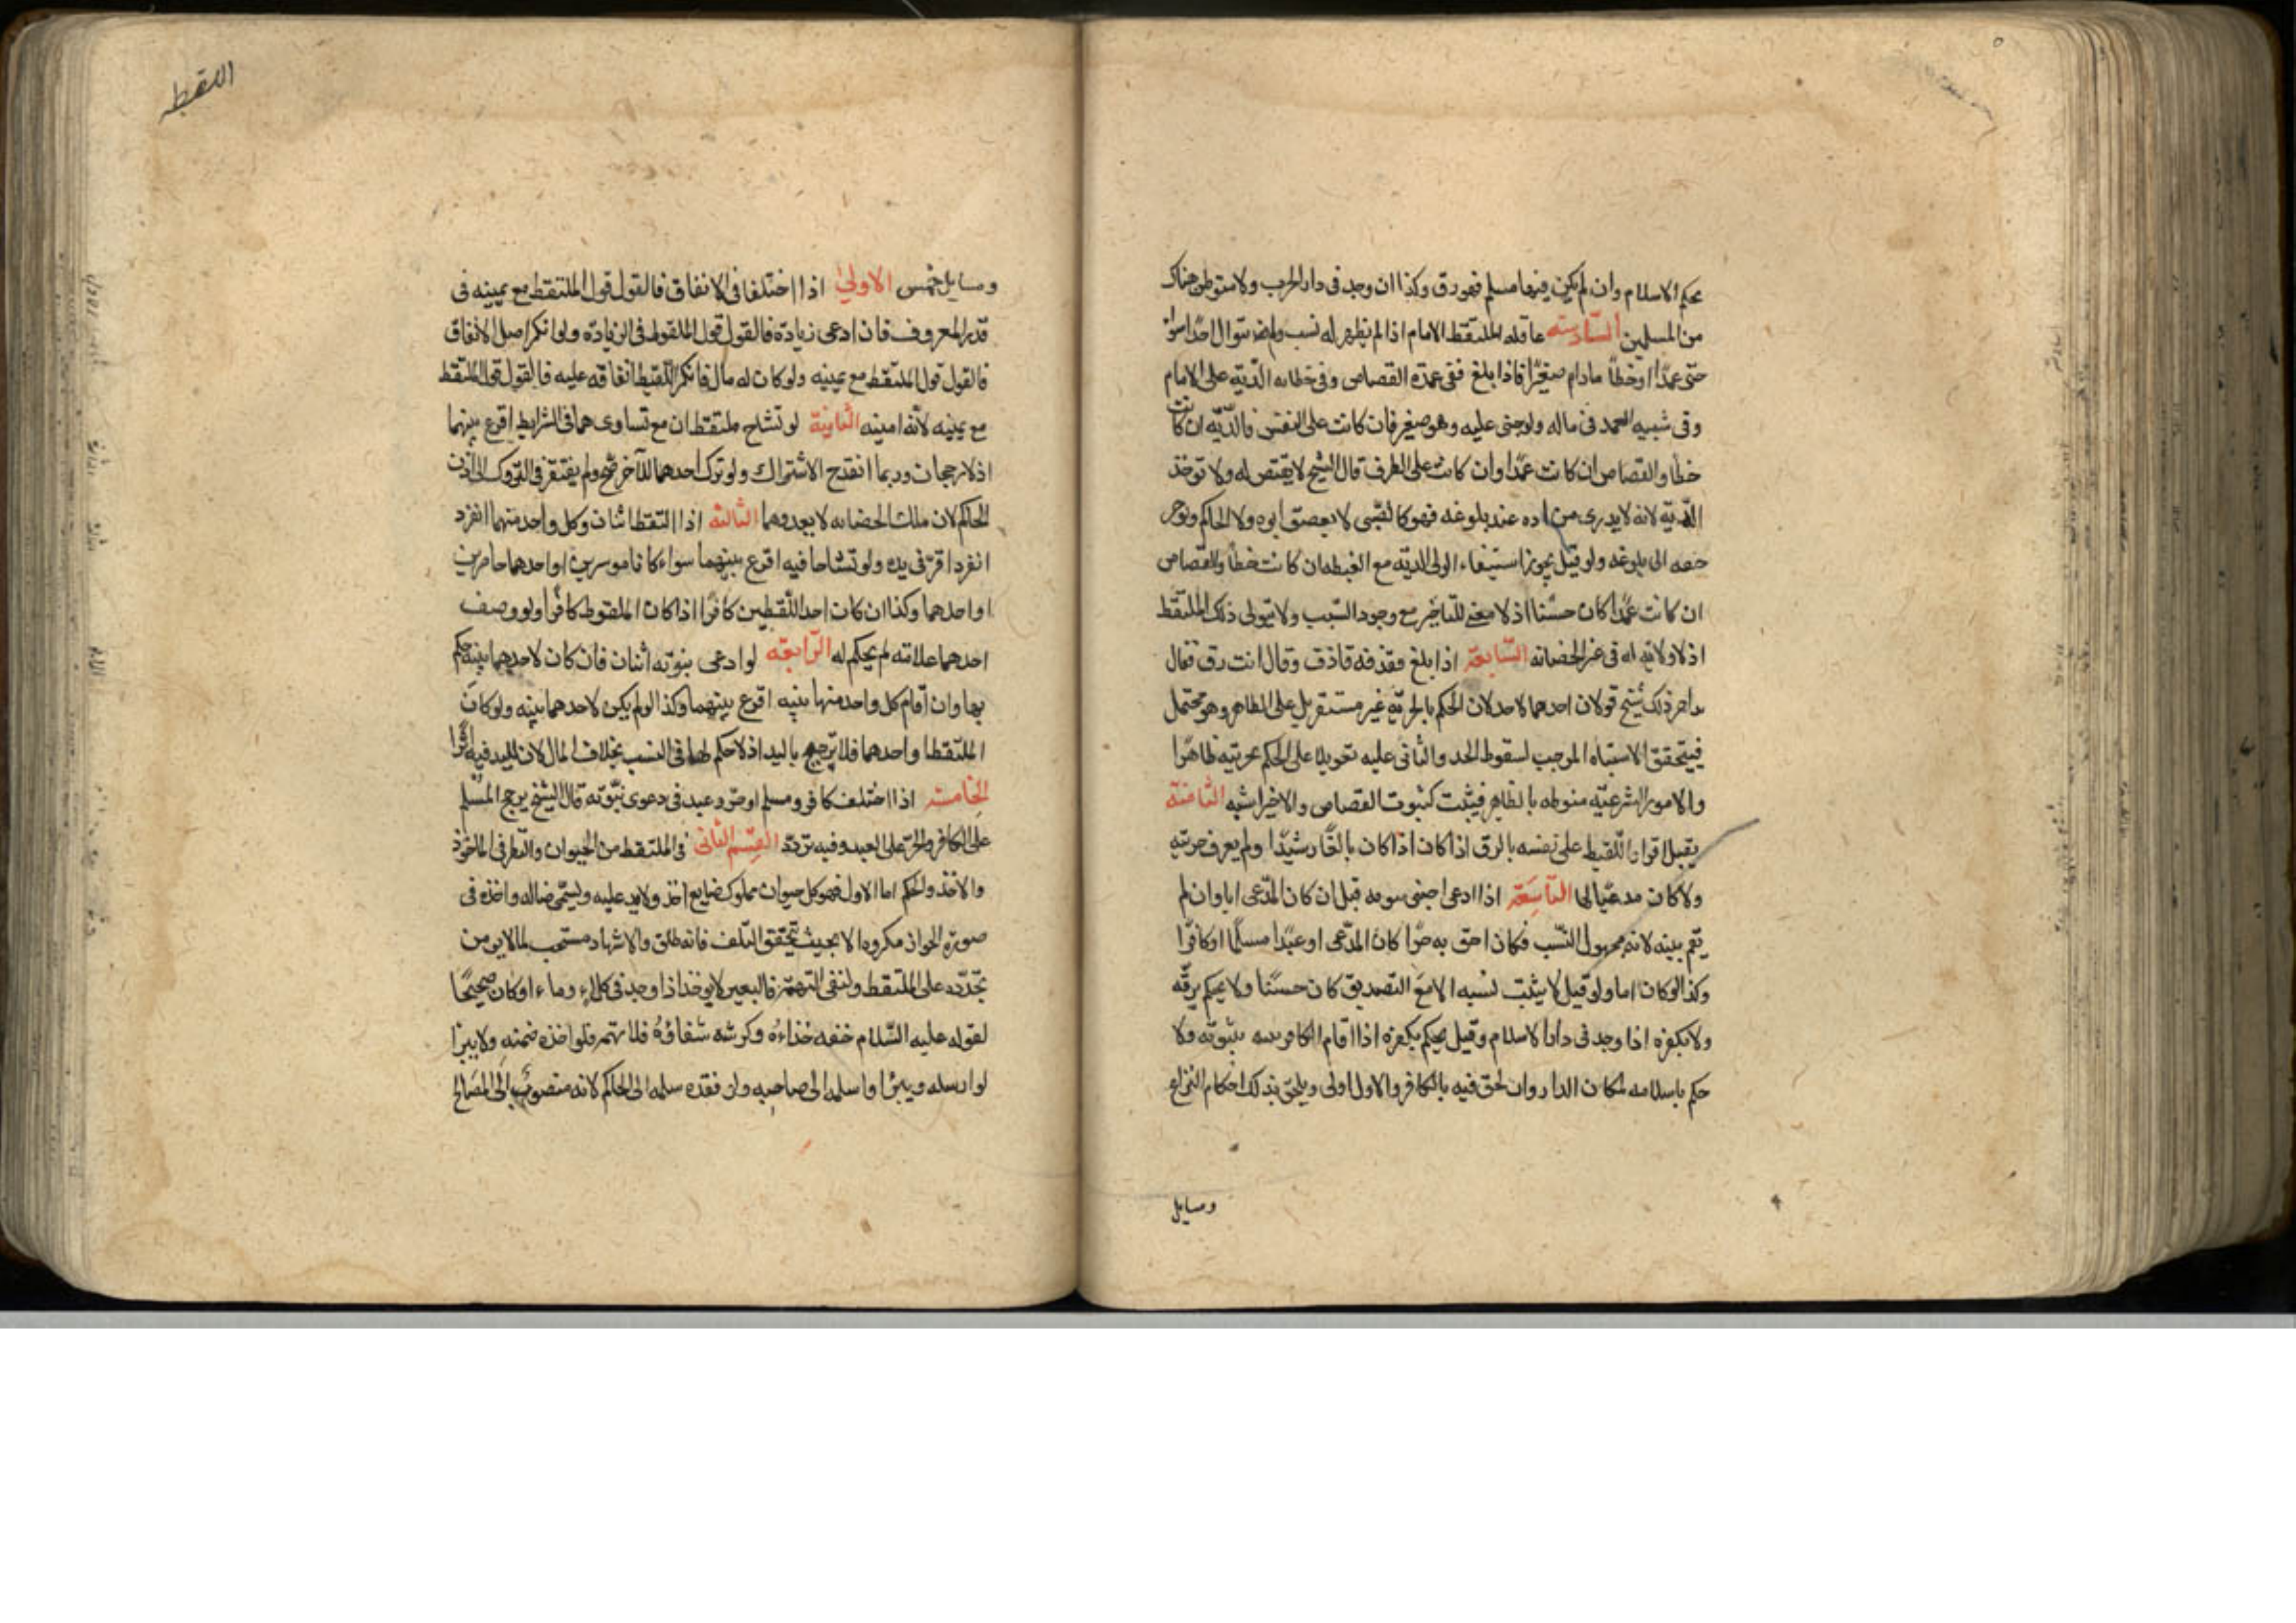 بحكم الاسلام وان لم يكن فيها مسلم فهو رق وكذا ان وجد فى دار الحرب ولا مستوطن هناك
من المسلمين السّادسته عاقله الملتقط الامام اذا لم يظهر له نسب ولم يتوال احدًا سواء
جنى عمدًا اوخطأ مادام صغيرًا فاذا بلغ ففى عمده القصاص وفى خطاه الدّيّه على الامام
وفى شبيه العمد فى ماله ولوجنى عليه وهو صغير فان كانت على النفس فالدّيّه ان كانت
خطا والقصاص ان كانت عمدًا وان كانت على الطرف قال الشيخ لا يقتص له ولا توخذ
الدّيّه لانه لا يدرى من اده عند بلوغه فهو كالصّبى لا يعصق ابوه ولا الحاكم ويوخر
حقه الى بلوغه ولو قيل بجواز استيفاء الولى الديّه مع الغبطه ان كانت خطأ والقصاص
ان كانت عمدًا كان حسنًا اذ لا معنى للتاخير مع وجود السّبب ولا يتولى ذلك الملتقط
اذ لا ولاية له فى غير الحضانه السّابعة اذا بلغ فقذفه قاذف وقال انت رق فقال
بل حر فللشيخ قولان احدهما لا حد لان الحكم بالحريّة غير مستقر بل على الظاهر وهو محتمل
فيتحقق الاشتباه الموجب لسقوط الحد والثانى عليه تعويلا على الحكم بحريته ظاهرًا
والامور الشرعيّه منوطه بالظاهر فيثبت كثبوت القصاص والاخير اشبه الثامنة
يقبل اقرار اللّقيط على نفسه بالرق اذا كان اذا كان بالغًا رشيدًا ولم يعرف حريته
ولا كان مدعيًا لها التاسعة اذا ادعى اجنبى بنوته قبل ان كان المدّعى ابا وان لم
يقم بينه لانه مجهول النّسب فكان احق به حرًا كان المدّعى او عبدًا مسلمًا اوكافرًا
وكذا لوكان اما ولو قيل لا يثبت نسبه الا مع التصديق كان حسنًا ولا يحكم برقّه
ولا بكفره اذا وجد فى دار الاسلام وقيل يحكم بكفره اذا اقام الكافر بينه ببنوته ولا
حكم باسلامه لمكان الدار وان لحق فيه بالكافر والاول اولى ويلحق بذلك احكام النزاع
ومسايل
اللقطه
ومسايل خمس الاولى اذا اختلفا فى الانفاق فالقول قول الملتقط مع يمينه فى
قدر المعروف فان ادعى زيادة فالقول قول الملقوط فى الزيادة ولو انكر اصل الانفاق
فالقول قول الملتقط مع يمينه ولوكان له مال فانكر اللّقيط انفاقه عليه فالقول قول الملتقط
مع يمينه لانّه امينه الثانية لو تشاح ملتقطان مع تساويهما فى الشرايط اقرع بينهما
اذ لا رجحان وربما انقدح الاشتراك ولو ترك احدهما للآخر صح ولم يفتقر فى التروك الى اذن
الحاكم لان ملك الحضانه لا يعدوهما الثالثه اذا التقطا اثنان وكل واحد منهما انفرد
انفرد اقرّ فى يده ولو تشاحا فيه اقرع بينهما سواء كانا موسرين او احدهما حاضرين
او احدهما وكذا ان كان احد اللّقطين كافرًا اذا كان الملقوط كافرًا ولو وصف
احدهما علامته لم يحكم له الرّابعته لو ادعى بنوّته اثنان فان كان لاحدهما بينه حكم
بها وان اقام كل واحد منها بينه اقرع بينهما وكذا لو لم يكن لاحدهما بينه ولوكان
الملتقطا واحدهما فلا ترجيح باليد اذ لا حكم لها فى النسب بخلاف المال لان لليد فيه اثرًا
الخامسته اذا اختلف كافر ومسلم او حرّ وعبد فى دعوى بنوّته قال الشيخ يرجح المسلم
على الكافر والحرّ على العبد وفيه تردد القسم الثانى فى الملتقط من الحيوان والنظر فى الماخوذ
والاخذ والحكم اما الاول فهو كل حيوان مملوك ضايع اخذ ولا يد عليه ويسمّى ضاله واخذه فى
صورة الجواز مكروه الا بحيث يتحقق التلف فانه طلق والاشهاد مستحب لما لا يومن
تجدّده على الملتقط ولنفى التهمة فالبعير لا يوخذ اذا وجد فى كلاء وماء اوكان صحيحًا
لقوله عليه السّلام خفه حذاءه وكرشه سقاؤه فلا تهجه فلو اخذه ضمنه ولا يبرا
لو ارسله ويبرا واسلمه الى صاحبه ولو فقده سلمه الى الحاكم لانه منصوب الى المصالح